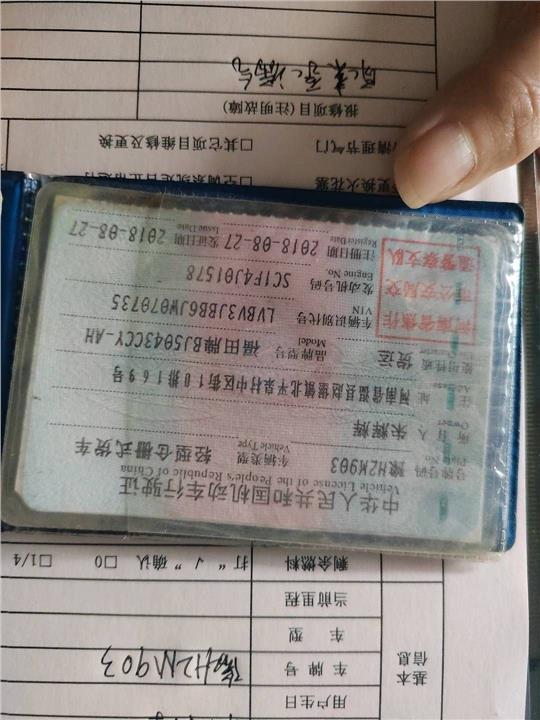 用户生日
车牌号 豫H2M903
车型
当前里程
基本信息
剩余燃料 打“√”确认 □0 □1/4
中华人民共和国机动车行驶证
Vehicle License of the People's Republic of China
号牌号码 豫H2M903 车辆类型 轻型仓栅式货车
Plate No. Vehicle Type
所有人 朱辉辉
Owner
住址 河南省温县赵堡镇北平皋村中区街10排169号
Address
使用性质 货运 品牌型号 福田牌BJ5043CCY-AH
Model
车辆识别代号 LVBV3JBB6JW070735
VIN
发动机号码 SC1F4J01578
Engine No.
注册日期 2018-08-27 发证日期 2018-08-27
Register Date Issue Date
河南省焦作
市公安局交
通警察支队
更换火花塞 □空调系统是否正常运行
清理节气门 □其它项目维修及更换
报修项目(注明故障)